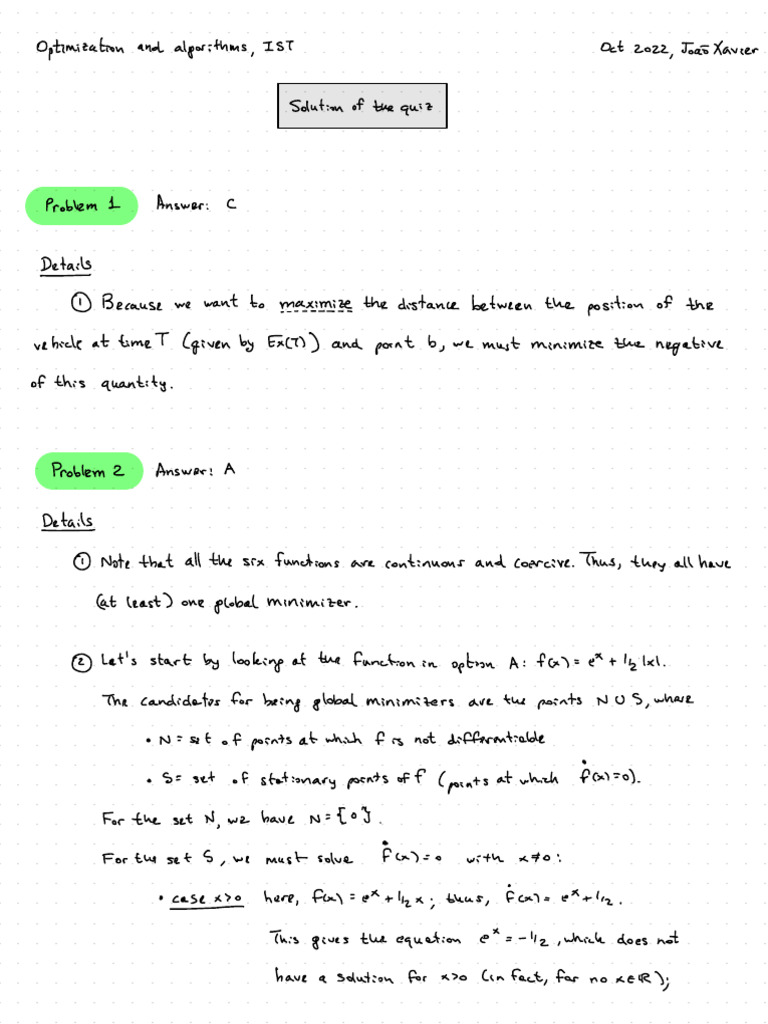 Optimization and algorithms, IST
Oct 2022, João Xavier
Solution of the quiz
Problem 1 Answer: C
Details
① Because we want to maximize the distance between the position of the
vehicle at time T (given by Ex(T)) and point b, we must minimize the negative
of this quantity.
Problem 2 Answer: A
Details
① Note that all the six functions are continuous and coercive. Thus, they all have
(at least) one global minimizer.
② Let's start by looking at the function in option A: f(x) = e^x + 1/2 |x|.
The candidates for being global minimizers are the points N ∪ S, where
• N = set of points at which f is not differentiable
• S = set of stationary points of f (points at which ḟ(x)=0).
For the set N, we have N = {0}.
For the set S, we must solve ḟ(x)=0 with x≠0:
• case x>0 here, f(x) = e^x + 1/2 x; thus, ḟ(x) = e^x + 1/2.
This gives the equation e^x = -1/2, which does not
have a solution for x>0 (in fact, for no x∈ℝ);